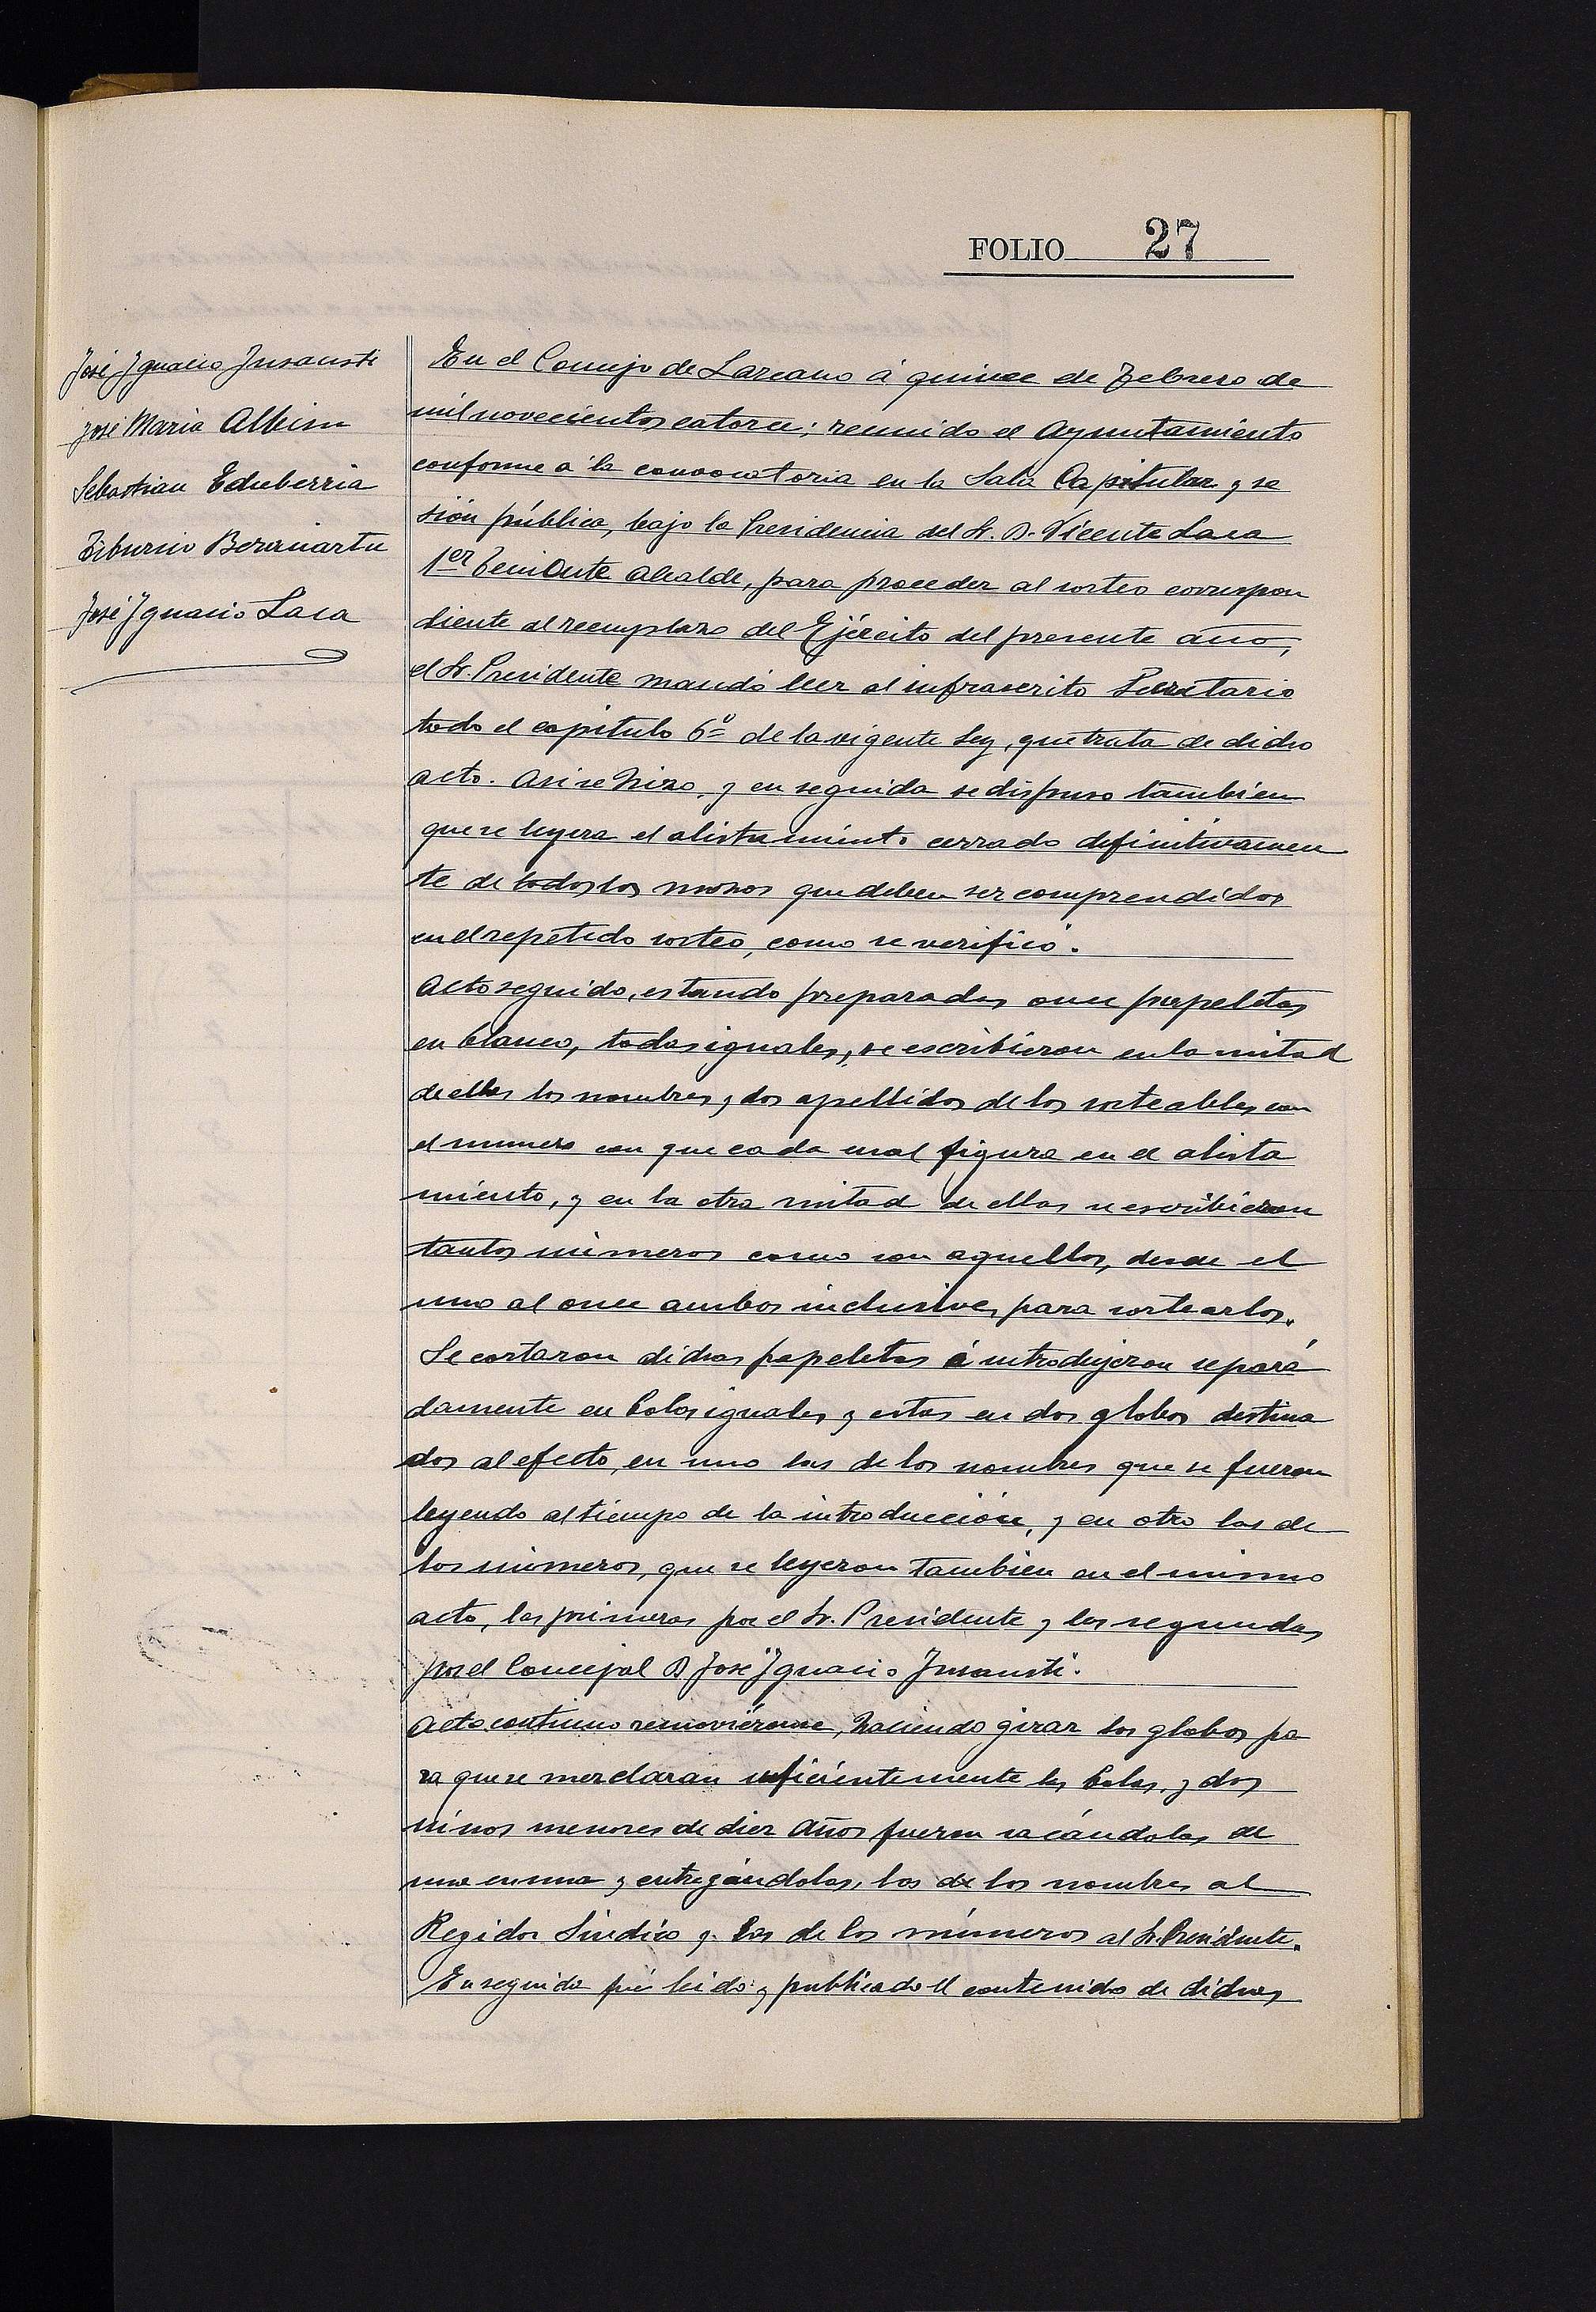 FOLIO 27
José Ignacio Insausti
José Maria Albisu
Sebastian Echeberria
Tiburcio Berariartu
José Ignacio Lasa
En el Concejo de Lazcano á quince de Febrero de
mil novecientos catorce; reunido el Ayuntamiento
conforme a la convocatoria en la Sala Capitular y se
sión pública, bajo la Presidencia del Sr. D. Vicente Lasa
1er Teniente Alcalde, para proceder al sorteo correspon
diente al reemplazo del Ejército del presente año,
el Sr. Presidente mandó leer al infrascrito Secretario
todo el capítulo 6º de la vigente Ley, que trata de dicho
acto. Asi se hizo, y en seguida se dispuso tambien
que se leyera el alistamiento cerrado definitivamen
te de todos los mozos que deben ser comprendidos
en el repetido sorteo, como se verificó.
Acto seguido, estando preparadas once papeletas
en blanco, todas iguales, se escribieron en la mitad
de ellas los nombres y dos apellidos de los sorteables con
el numero con que cada cual figura en el alista
miento, y en la otra mitad de ellas se escribieron
tantos números como son aquellos, desde el
uno al once ambos inclusive, para sortearlos.
Se cortaron dichas papeletas é introdujeron separa
damente en bolas iguales y estas en dos globos destina
dos al efecto, en uno las de los nombres que se fueron
leyendo al tiempo de la introducción, y en otro las de
los números, que se leyeron tambien en el mismo
acto, las primeras por el Sr. Presidente y las segundas
por el Concejal D José Ignacio Insausti.
Acto continuo removiéronse, haciendo girar los globos pa
ra que se mezclaran suficientemente las bolas, y dos
niños menores de diez años fueron sacándolas de
una en una y entregándolas, las de los nombres al
Regidor Síndico y las de los números al Sr. Presidente.
En seguida fué leido y publicado el contenido de dichas